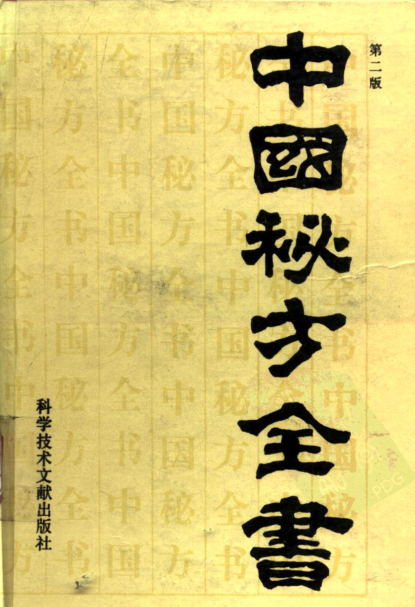 第二版
中國秘方全書
科学技术文献出版社